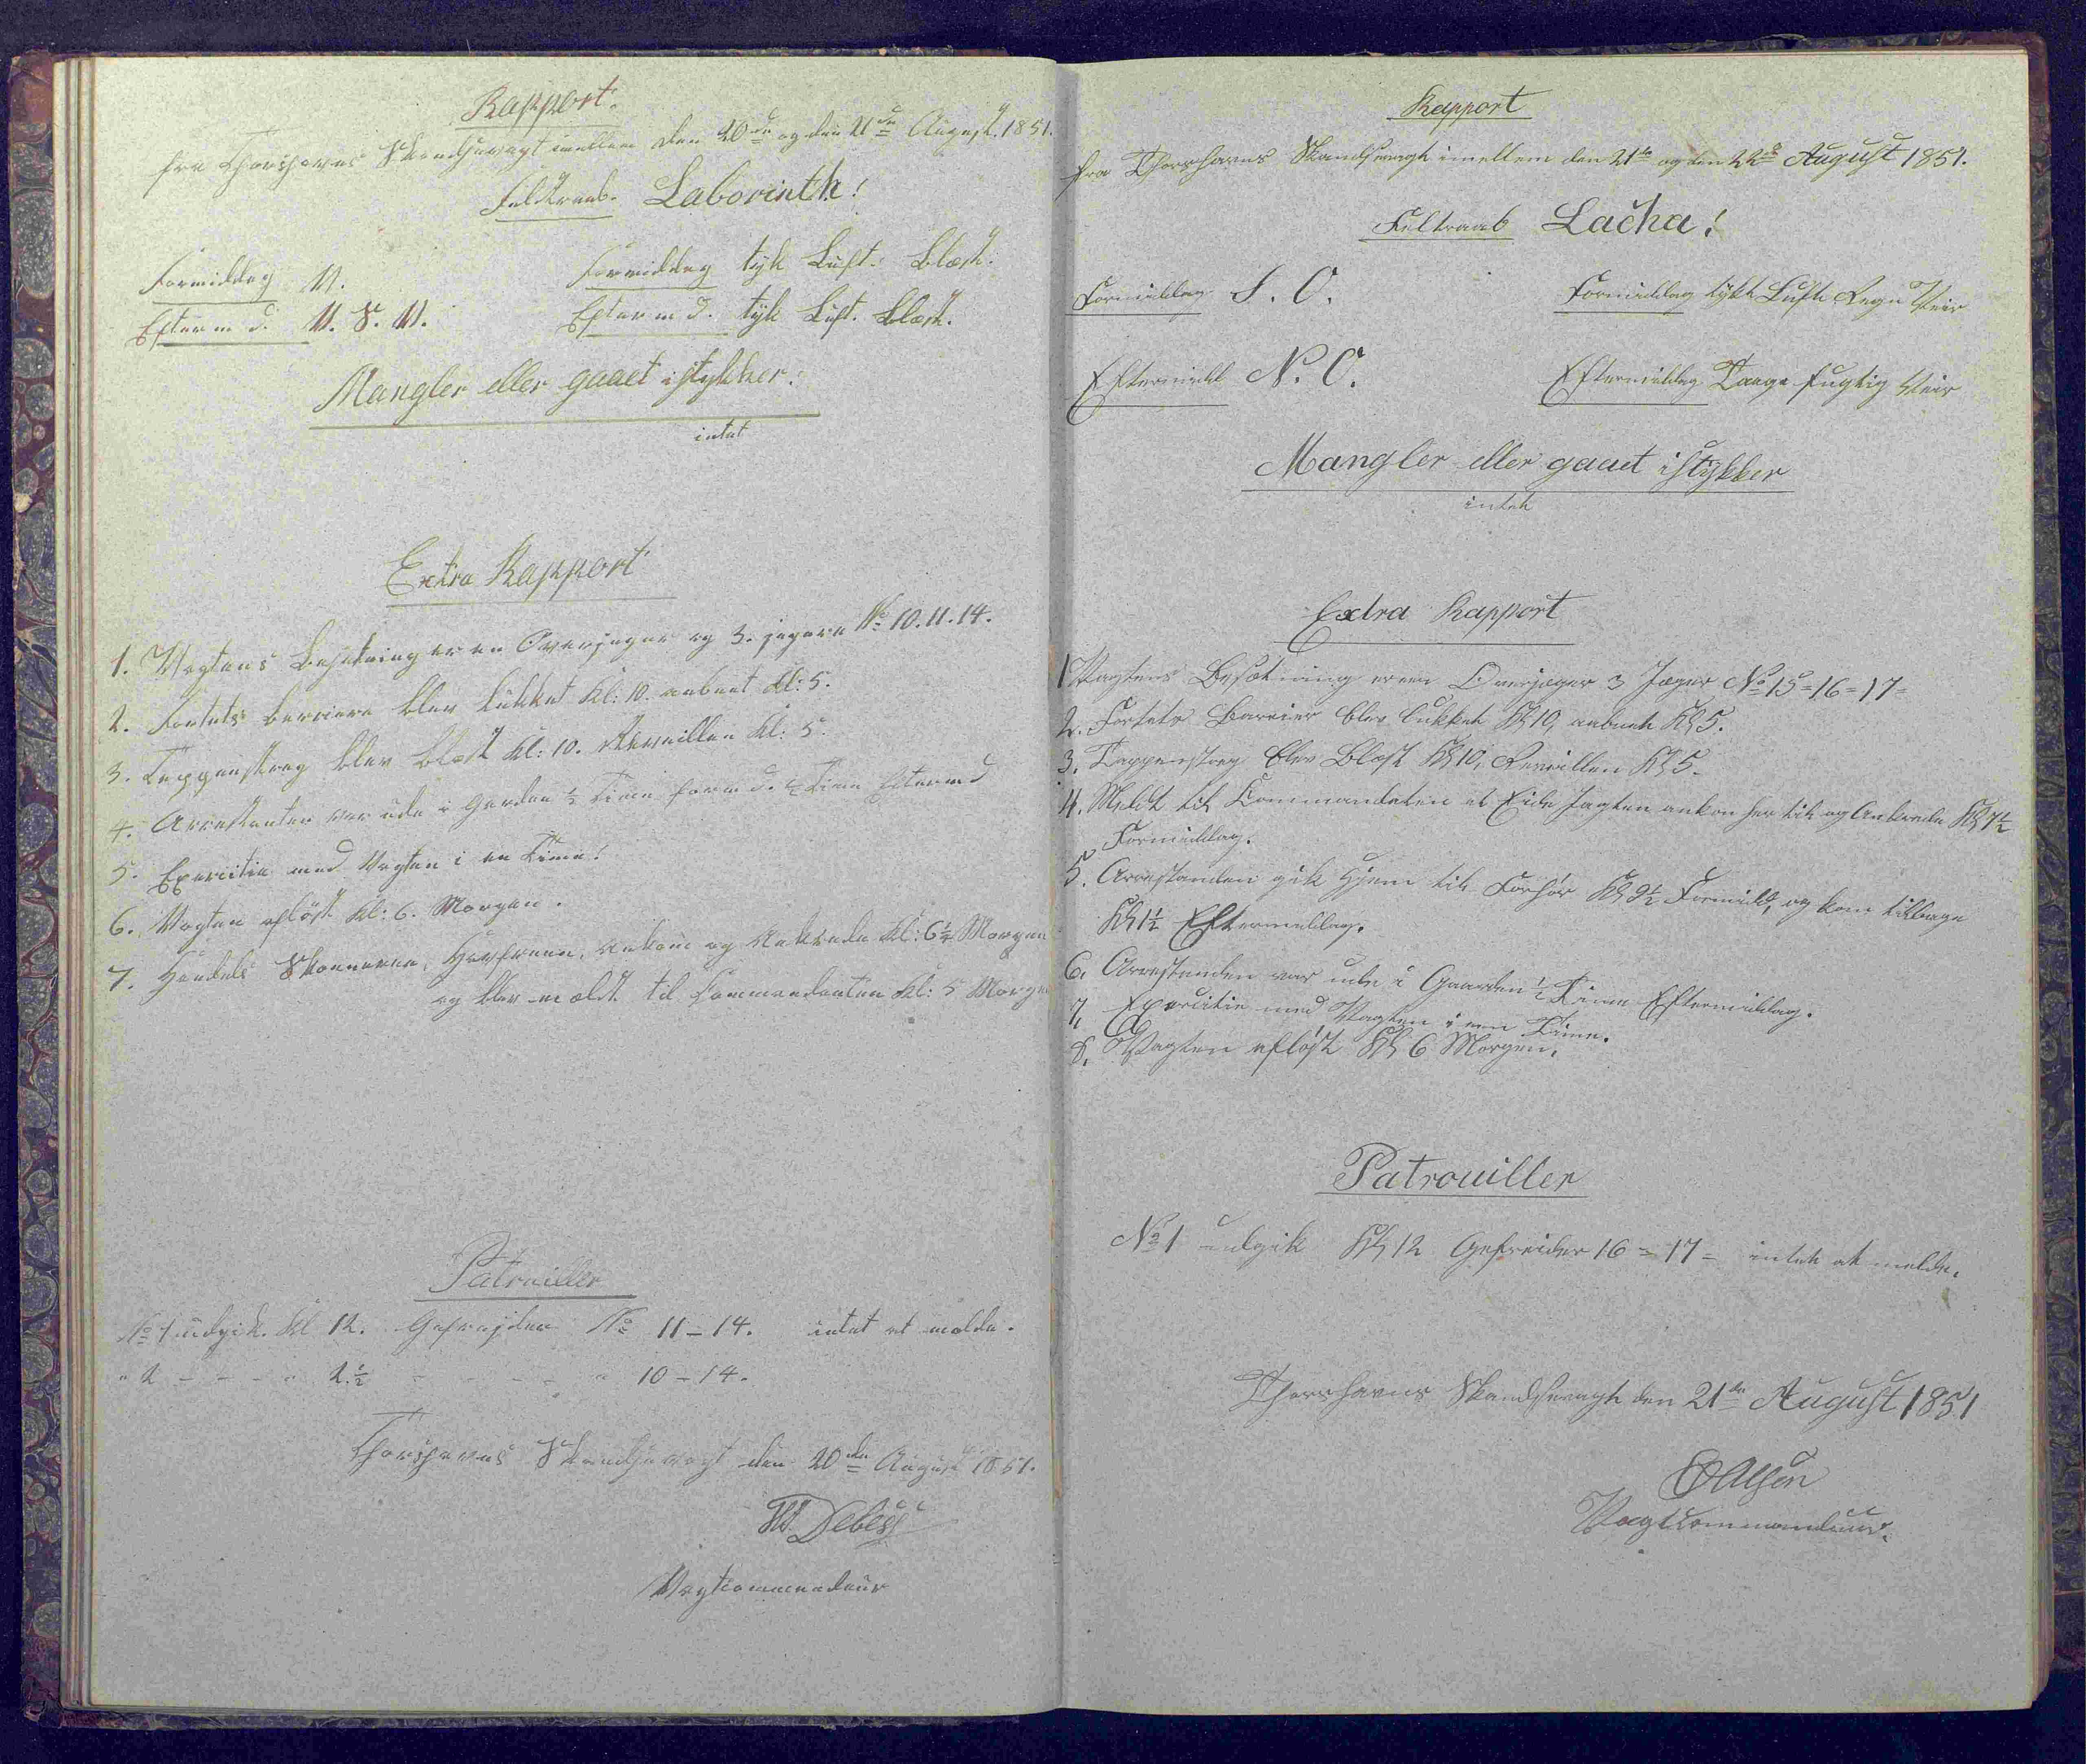 Rapport.
fra Thorshavns Skandsevagt imellem den 20de og den 21de August. 1851.
Feldtraab. Laborinth!
Formiddag V. Formiddag tyk Luft. Blæst.
Efterm d. V. S. V. Efterm d. tyk Luft. Blæst.
Mangler eller gaaet istykker:
intet
Extra Rapport
1. Vagtens Besætning er en Overjæger og 3. jægere No 10. 11. 14.
2. Fortets Barriere blev lukket Kl: 10. aabnet Kl: 5.
3. Tappenstreg blev blæst Kl: 10. Reveillen Kl: 5.
4. Arrestanten var ude i Gården ½ Time form d. ½ Time Efterm d
5. Exercitie med Vagten i en Time!
6. Vagten afløst Kl: 6. Morgen.
7. Handels Skonnerten, Havfruen, Ankom og Ankrede Kl: 6½ Morgen
og blev meldt til Commandanten Kl: 5 Morgen
Patrouiller
No 1 udgik. Kl 12. Gefrejder No 11 – 14. intet at melde.
" 2 – – – " 2.½ – – – – " 10 – 14.
Thorshavns Skandsevagt den 20de August 1851.
Debess
Vagtcommandeur
Rapport
fra Thorshavns Skandsevagt imellem den 21de og den 22de August 1851.
Feltraab Lacha!
Formiddag S. O. Formiddag tykt Luft Regn Veir
Eftermidd N. O. Eftermiddag Taage fugtig Veir
Mangler eller gaaet istykker
intet
Extra Rapport
1 Vagtens Besætning er en Overjæger 3 Jæger No 15 = 16 = 17 =
2. Fortets Barrier blev lukket Kl 10, aabnet Kl 5.
3. Tappenstreg blev Blæst Kl 10, Reveillen Kl 5.
4. Meldt til Commandanten at Eide Jagten ankom her til og Ankrede Kl 7½
Formiddag.
5. Arrestanten gik Hjem til Forhør Kl 9½ Formidd, og kom tilbage
Kl 1½ Eftermiddag.
6. Arrestanten var ude i Gaarden ½ Time Eftermiddag.
7. Exercitie med Vagten i een Time.
8. Vagten afløst Kl 6 Morgen.
Patrouiller
No 1 udgik Kl 12 Gefreider 16 = 17 = intet at melde.
Thorshavns Skandsevagt den 21de August 1851
Olsen
Vagtcommandeur.